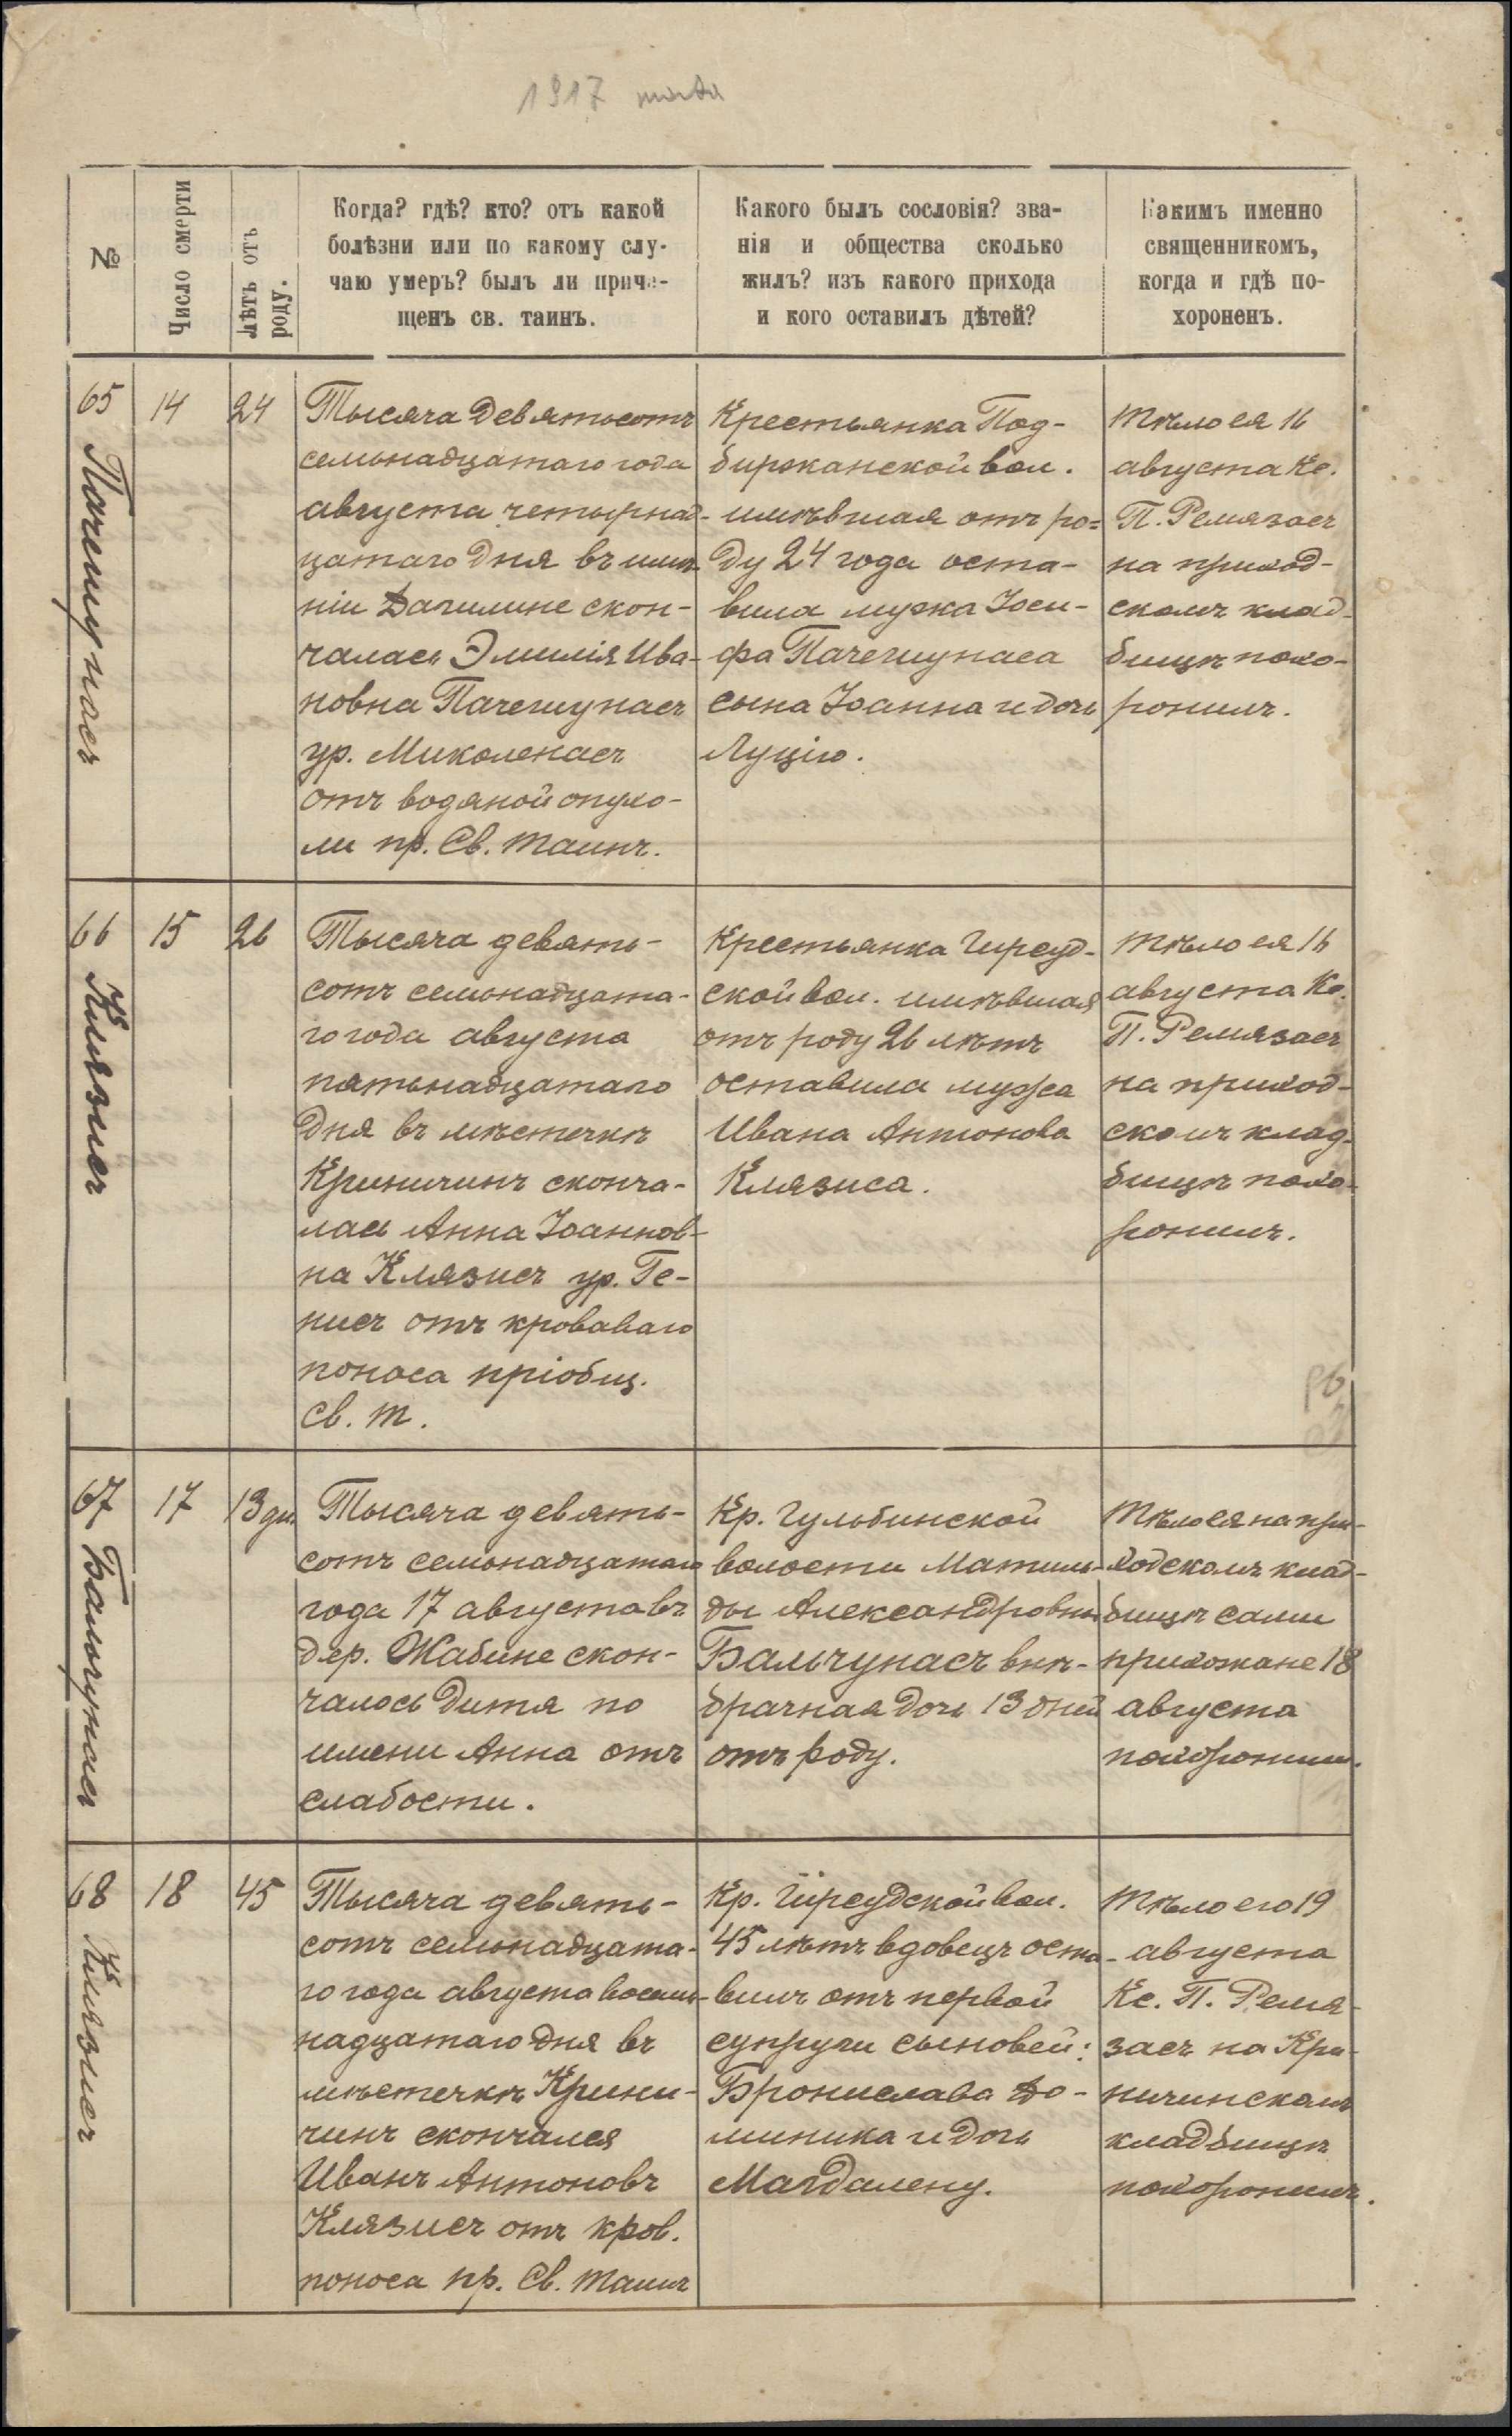 1917 года
№
Число смерти
Лѣтъ отъ
роду.
Когда? гдѣ? кто? отъ какой
болѣзни или по какому слу-
чаю умеръ? былъ ли приче-
щенъ св. таинъ.
Какого былъ сословія? зва-
нія и общества сколько
жилъ? изъ какого прихода
и кого оставилъ дѣтей?
Какимъ именно
священникомъ,
когда и гдѣ по-
хороненъ.
65
Пачешунасъ
14
24
Тысяча девятьсотъ
семьнадцатаго года
августа четырнад-
цатаго дня въ имѣ-
ніи Дагилине скон-
чалась Эмилія Ива-
новна Пачешунасъ
ур. Миколенасъ
отъ водяной опухо-
ли пр. Св. таинъ.
Крестьянка Под-
биржанской вол.
имѣвшая отъ ро-
ду 24 года оста-
вила мужа Іоси-
фа Пачешунаса
сына Іоанна и дочь
Луцію.
тѣло ея 16
августа Кс.
П. Ремязасъ
на приход-
скомъ клад-
бищѣ похо-
ронилъ.
66
Клязисъ
15
26
Тысяча девять-
сотъ семьнадцата-
го года августа
пятьнадцатаго
дня въ мѣстечкѣ
Криничинъ сконча-
лась Анна Іоаннов-
на Клязисъ ур. Ге-
нисъ отъ кроваваго
поноса пріобщ.
Св. Т.
Крестьянка Гиреуд-
ской вол. имѣвшая
отъ роду 26 лѣтъ
оставила мужа
Ивана Антонова
Клязиса.
тѣло ея 16
августа Кс.
П. Ремязасъ
на приход-
скомъ клад-
бищѣ похо-
ронилъ.
67
Бальчунасъ
17
13 дн.
Тысяча девять-
сотъ семьнадцатаго
года 17 августа въ
дер. Жабине скон-
чалось дитя по
имени Анна отъ
слабости.
Кр. Гульбинской
волости Матиль-
ды Александровны
Бальчунасъ внѣ-
брачная дочь 13 дней
отъ роду.
Тѣло ея на при-
ходскомъ клад-
бищѣ сами
прихожане 18
августа
похоронили.
68
Клязисъ
18
45
Тысяча девять-
сотъ семьнадцата-
го года августа восемь-
надцатаго дня въ
мѣстечкѣ Крини-
чинъ скончался
Иванъ Антоновъ
Клязисъ отъ кров.
поноса пр. Св. Таинъ
Кр. Гиреудской вол.
45 лѣтъ вдовецъ оста-
вилъ отъ первой
супруги сыновей:
Бронислава До-
миника и дочь
Магдалену.
Тѣло его 19
августа
Кс. П. Ремя-
засъ на Кри-
ничинскомъ
кладбищѣ
похоронилъ.